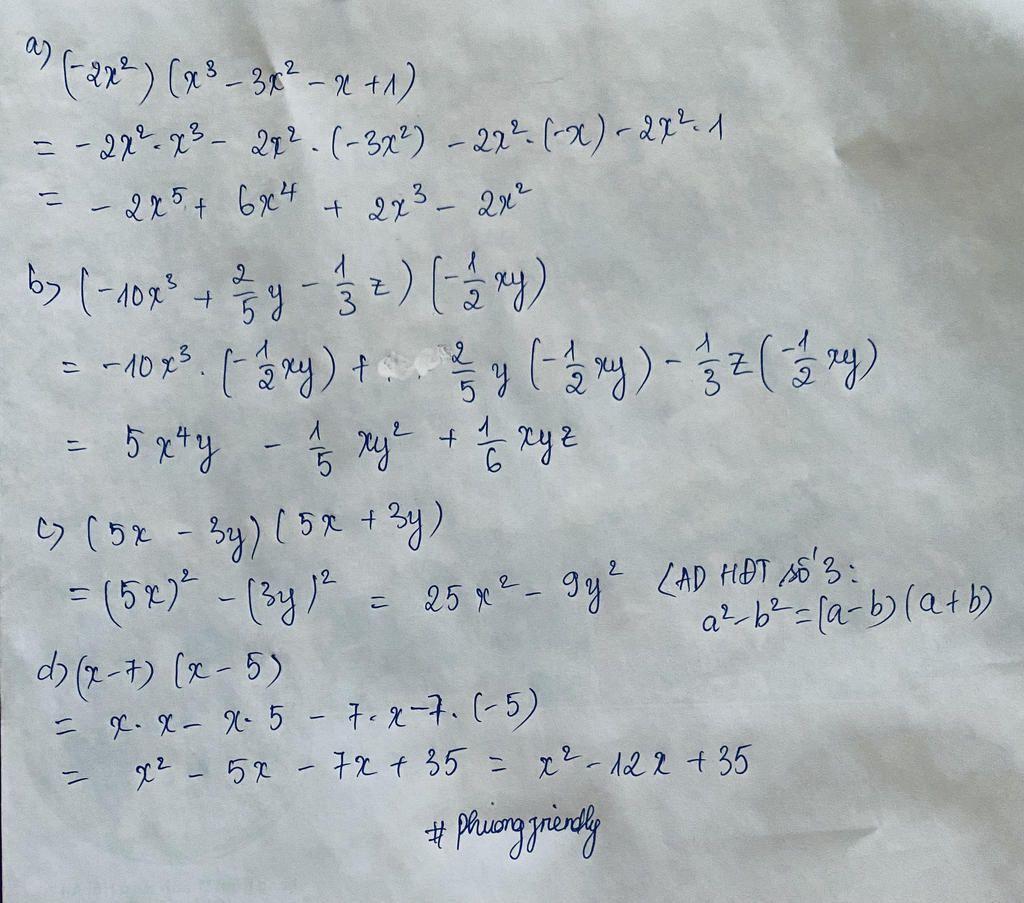 a) (-2x²) (x³ - 3x² - x + 1)
= - 2x² . x³ - 2x² . (-3x²) - 2x² . (-x) - 2x² . 1
= - 2x⁵ + 6x⁴ + 2x³ - 2x²
b) (-10x³ + 2/5 y - 1/3 z) (-1/2 xy)
= -10x³ . (-1/2 xy) + . . 2/5 y (-1/2 xy) - 1/3 z (-1/2 xy)
= 5x⁴y - 1/5 xy² + 1/6 xyz
c) (5x - 3y) (5x + 3y)
= (5x)² - (3y)² = 25x² - 9y² (AD HĐT số 3:
a² - b² = (a - b) (a + b)
d) (x - 7) (x - 5)
= x . x - x . 5 - 7 . x - 7 . (-5)
= x² - 5x - 7x + 35 = x² - 12x + 35
# phuongfriendly